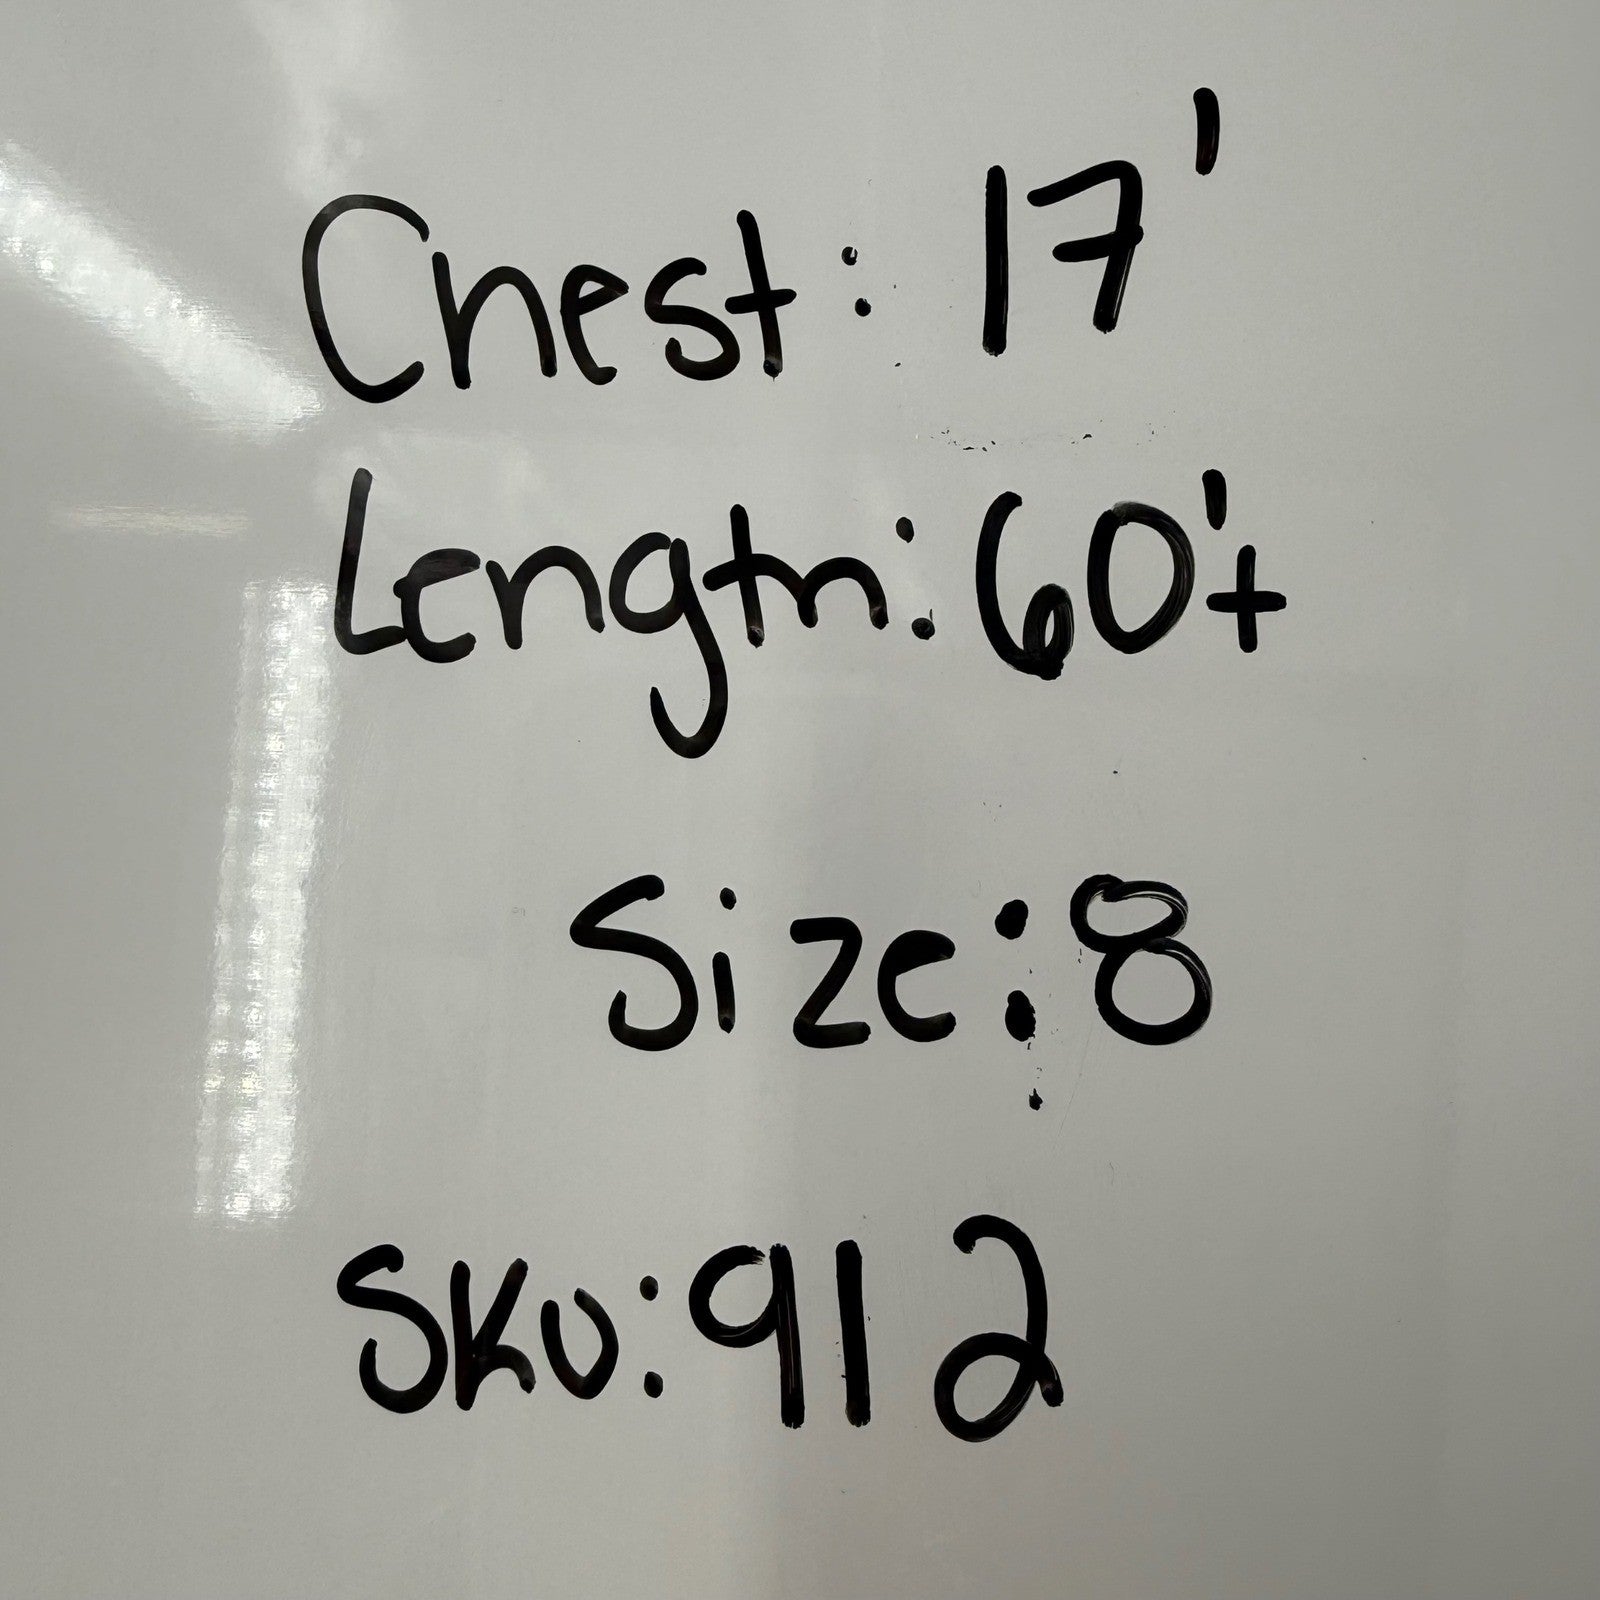 Chest: 17'
Length: 60'+
Size: 8
SKU: 912